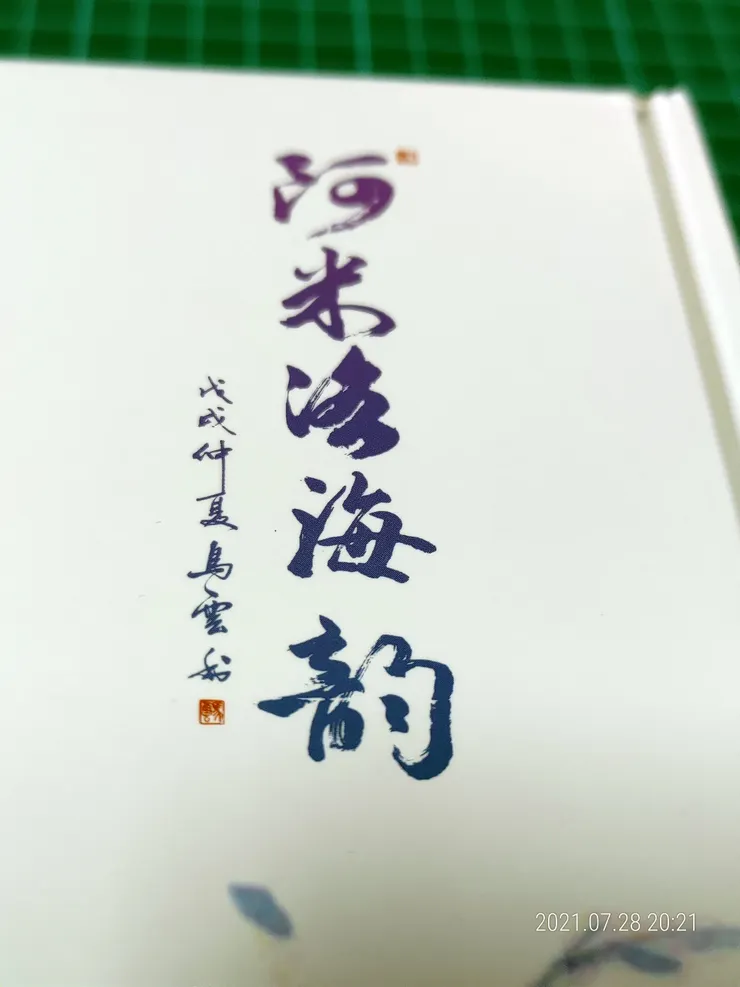 阿米洛海韵
戊戌仲夏乌雲
2021.07.28 20:21